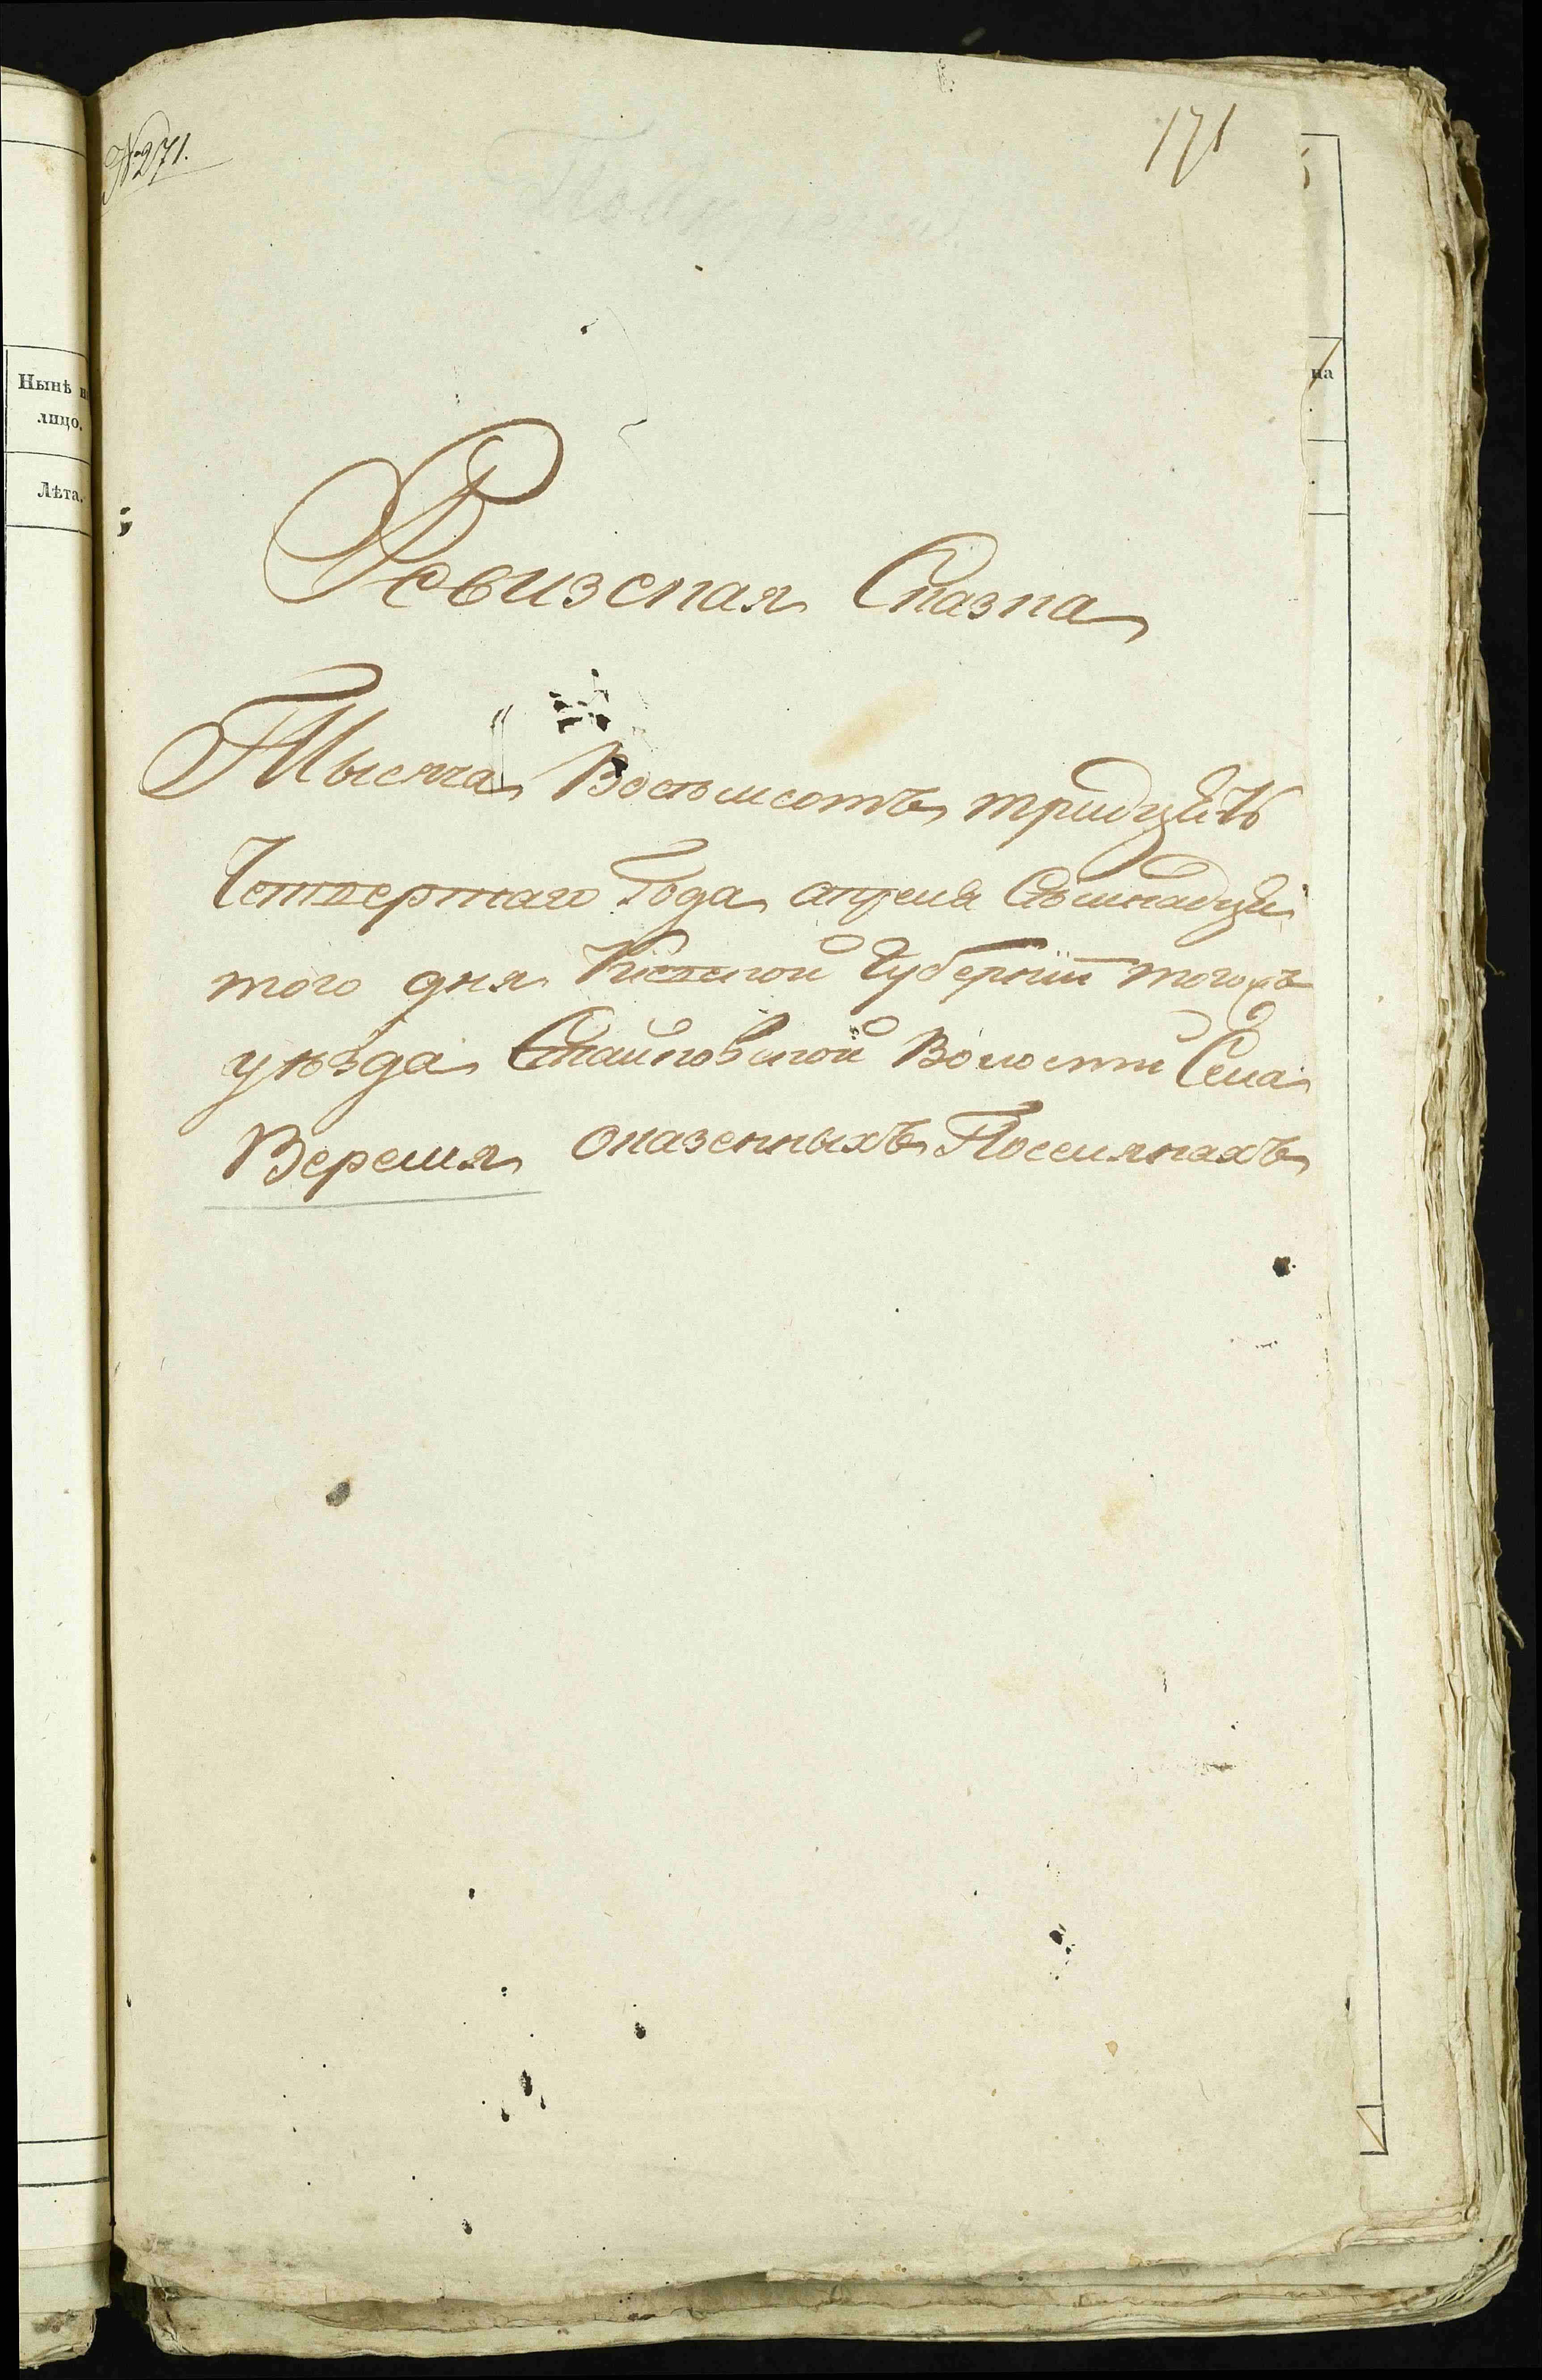 № 271.
171
Нынѣ
лицо.
Лѣта.
на
Ревизская Сказка
Тысяча Восьмсотъ тридцать
Четвертаго Года апреля
того дня Киевской Губернии тогожъ
уѣзда Стайковской Волости Села
Веремя оказенныхъ Поселянахъ